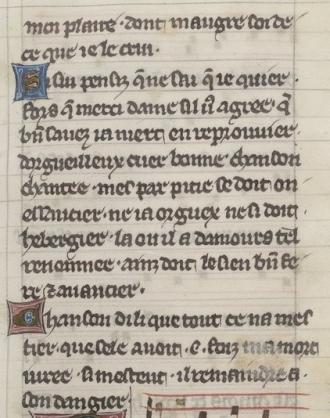 mon plaisir· dont maugre soi de
ce que ie le crui·
Si sui pensis q̃ ne sai q̃ ie quier·
fors q̃ merci dame sil uꝰ agree· q̃
bñ sauez ia niert en reprouuier·
dorgueilleux cuer bonne chancon
chantee· mes par pitie se doit on
essaucier· ne ia orguex ne si doit
hebergier· la ou il a damours tel
renommee· ainz doit le sien bñ fe
re ⁊ auancier·
Chanson di li que tout ce na mes
tier· que sele auoit ·c· foiz ma mort
iuree· si mestuet· il remaindre a
son dangier·